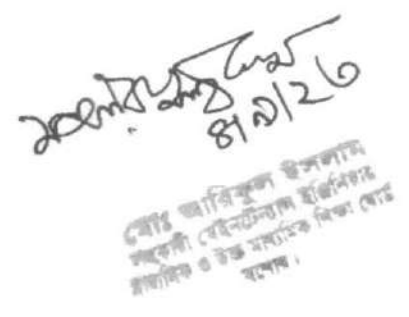 ৪/৯/২৩
মোঃ আরিফুল ইসলাম
সহকারী মেইনটেন্যান্স ইঞ্জিনিয়ার
মাধ্যমিক ও উচ্চ মাধ্যমিক শিক্ষা বোর্ড
যশোর।